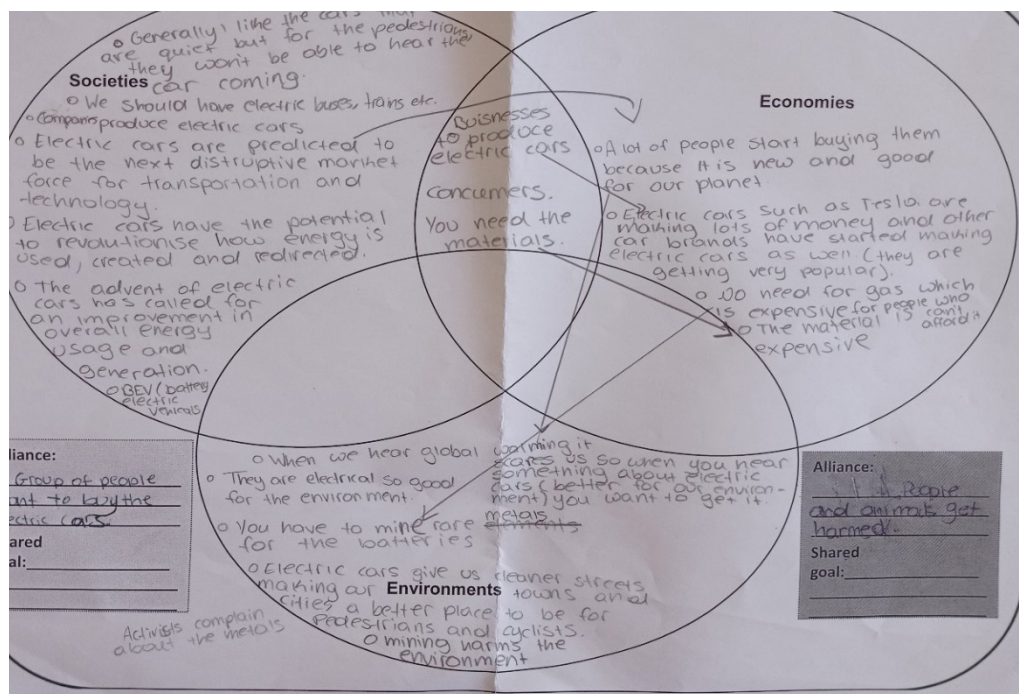 o Generally I like the cars that
are quiet but for the pedestrians
they won't be able to hear the
car coming.
Societies
o We should have electric buses, trans etc.
o Companies produce electric cars
o Electric cars are predicted to
be the next distruptive market
force for transportation and
technology.
o Electric cars have the potential
to revolutionise how energy is
used, created and redirected.
o The advent of electric
cars has called for
an improvement in
overall energy
usage and
generation.
o BEV (battery
electric
vehicals
Buisnesses
to produce
electric cars
concumers.
You need the
materials.
Economies
o A lot of people start buying them
because it is new and good
for our planet
o Electric cars such as Tesla are
making lots of money and other
car brands have started making
electric cars as well (they are
getting very popular).
o No need for gas which
is expensive for people who
can't
afford it
o The material is
expensive
o When we hear global warming it
scares us so when you hear
something about electric
cars (better for our environ-
ment) you want to get it.
o They are electrical so good
for the environment.
o You have to mine rare metals elements
for the batteries
o Electric cars give us cleaner streets
making our towns and
Environments
cities a better place to be for
pedestrians and cyclists.
o mining harms the
environment
Activists complain
about the metals
liance:
Group of people
ant to buy the
ectric cars
ared
al:
Alliance:
People
and animals get
harmed.
Shared
goal: